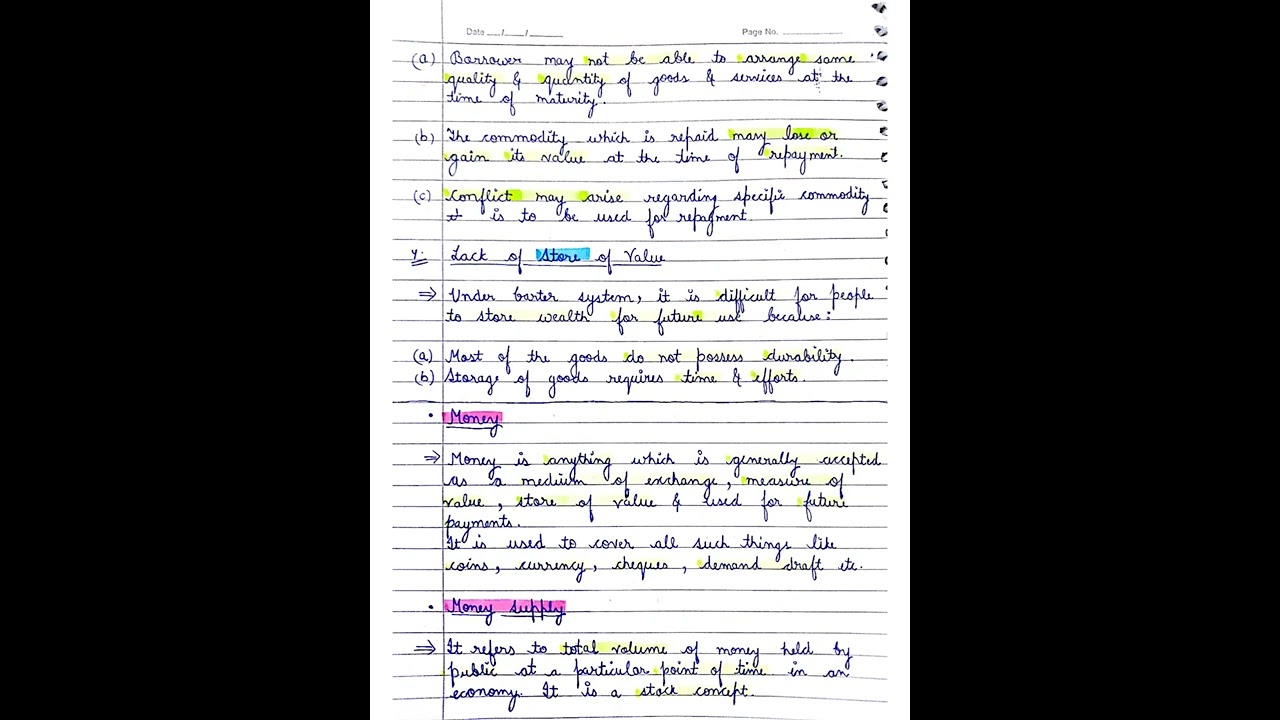 Date __/__/____ Page No. ________
(a) Barrower may not be able to arrange same
quality & quantity of goods & services at the
time of maturity.
(b) The commodity which is repaid may lose or
gain its value at the time of repayment.
(c) Conflict may arise regarding specific commodity
it is to be used for repayment.
4. Lack of Store of Value
⇒ Under barter system, it is difficult for people
to store wealth for future use because:
(a) Most of the goods do not possess durability.
(b) Storage of goods requires time & efforts.
• Money
⇒ Money is anything which is generally accepted
as a medium of exchange, measure of
value, store of value & used for future
payments.
It is used to cover all such things like
coins, currency, cheques, demand draft etc.
• Money supply
⇒ It refers to total volume of money held by
public at a particular point of time in an
economy. It is a stock concept.